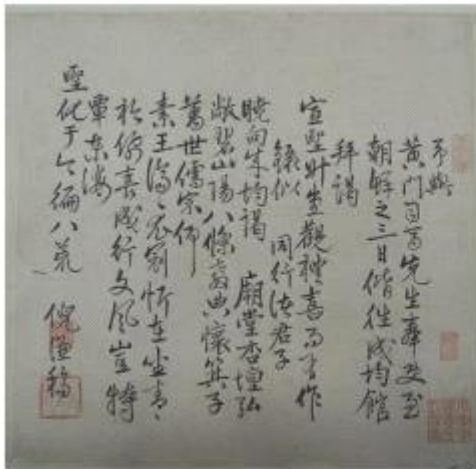 予與
黃門司馬先生奉使至
朝鮮之三日偕往成均館
拜謁
宣聖升堂觀禮喜而有作
錄似 同行諸君子
曉向成均謁 廟堂杏壇弘
敞碧山陽八條教典懷箕子
萬世儒宗仰
素王濟々衣冠忻在坐青々
衿佩喜成行文風豈特
覃東海
聖化于今徧八荒 倪謙稿